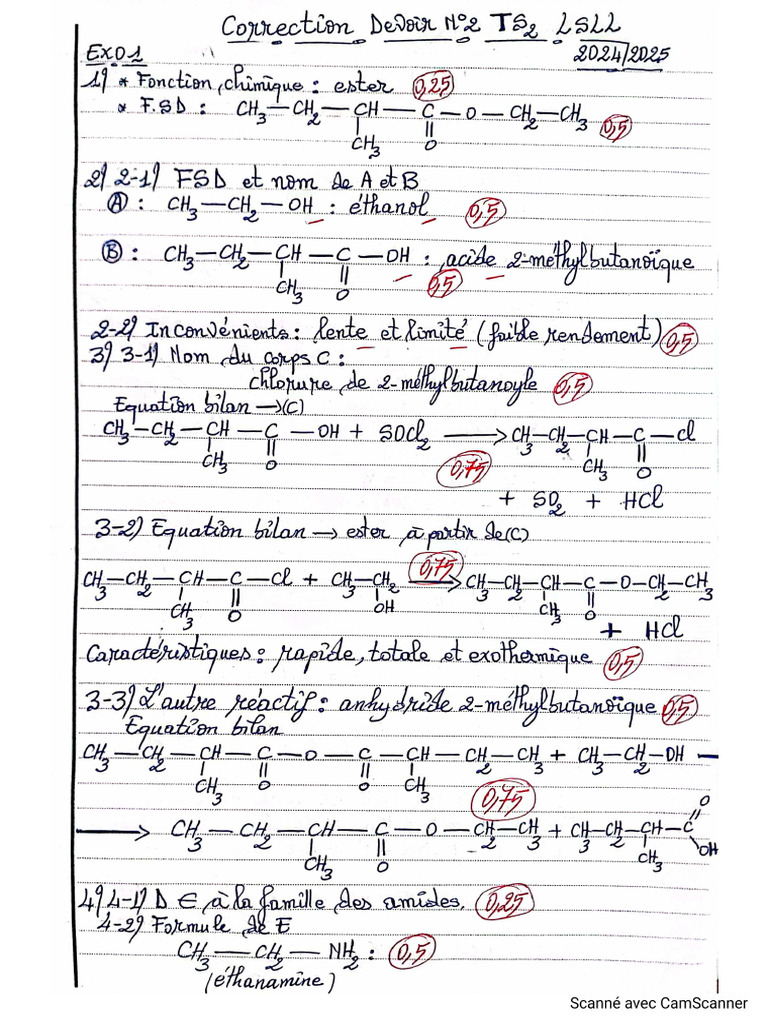 Correction Devoir N°2 TS2 LSLL
2024/2025
EXO1
1) * Fonction chimique : ester 0,25
* F.S.D : CH3—CH2—CH—C—O—CH2—CH3 0,5
CH3 O
2) 2-1) FSD et nom de A et B
Ⓐ : CH3—CH2—OH : éthanol 0,5
Ⓑ : CH3—CH2—CH—C—OH : acide 2-méthylbutanoïque
CH3 O 0,5
2-2) Inconvénients : lente et limité (faible rendement) 0,5
3) 3-1) Nom du corps C :
chlorure de 2-méthylbutanoyle 0,5
Equation bilan →(C)
CH3—CH2—CH—C—OH + SOCl2 → CH3—CH2—CH—C—Cl
CH3 O 0,75 CH3 O
+ SO2 + HCl
3-2) Equation bilan → ester à partir de (C)
CH3—CH2—CH—C—Cl + CH3—CH2 0,75 → CH3—CH2—CH—C—O—CH2—CH3
CH3 O OH CH3 O
+ HCl
Caractéristiques : rapide, totale et exothermique 0,5
3-3) L'autre réactif : anhydride 2-méthylbutanoïque 0,5
Equation bilan
CH3—CH2—CH—C—O—C—CH—CH2—CH3 + CH3—CH2—OH —
CH3 O O CH3 0,75
→ CH3—CH2—CH—C—O—CH2—CH3 + CH3—CH2—CH—C
O
OH
CH3 O CH3
4) 4-1) D ∈ à la famille des amides. 0,25
4-2) Formule de E
CH3—CH2—NH2 : 0,5
(éthanamine)
Scanné avec CamScanner